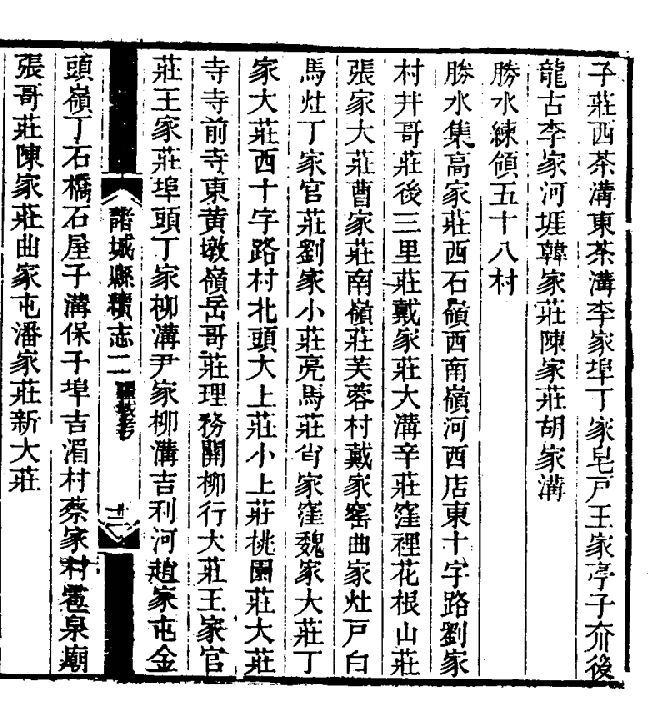 子莊西茶溝東茶溝李家埠丁家皂戸王家亭子夼後
龍古李家河堐韓家莊陳家莊胡家溝
勝水練領五十八村
勝水集高家莊西石嶺西南嶺河西店東十字路劉家
村井哥莊後三里莊戴家莊大溝辛莊窪裡花根山莊
張家大莊曹家莊南嶺莊芙蓉村戴家窰曲家灶戸白
馬灶丁家官莊劉家小莊亮馬莊肖家窪魏家大莊丁
家大莊西十字路村北頭大上莊小上莊桃園莊大莊
寺寺前寺東黄墩嶺岳哥莊理務開柳行大莊王家官
莊王家莊埠頭丁家柳溝尹家柳溝吉利河趙家屯金
諸城縣續志二 疆域考 三
頭嶺丁石橋石屋子溝保子埠吉湄村蔡家村雹泉廟
張哥莊陳家莊曲家屯潘家莊新大莊